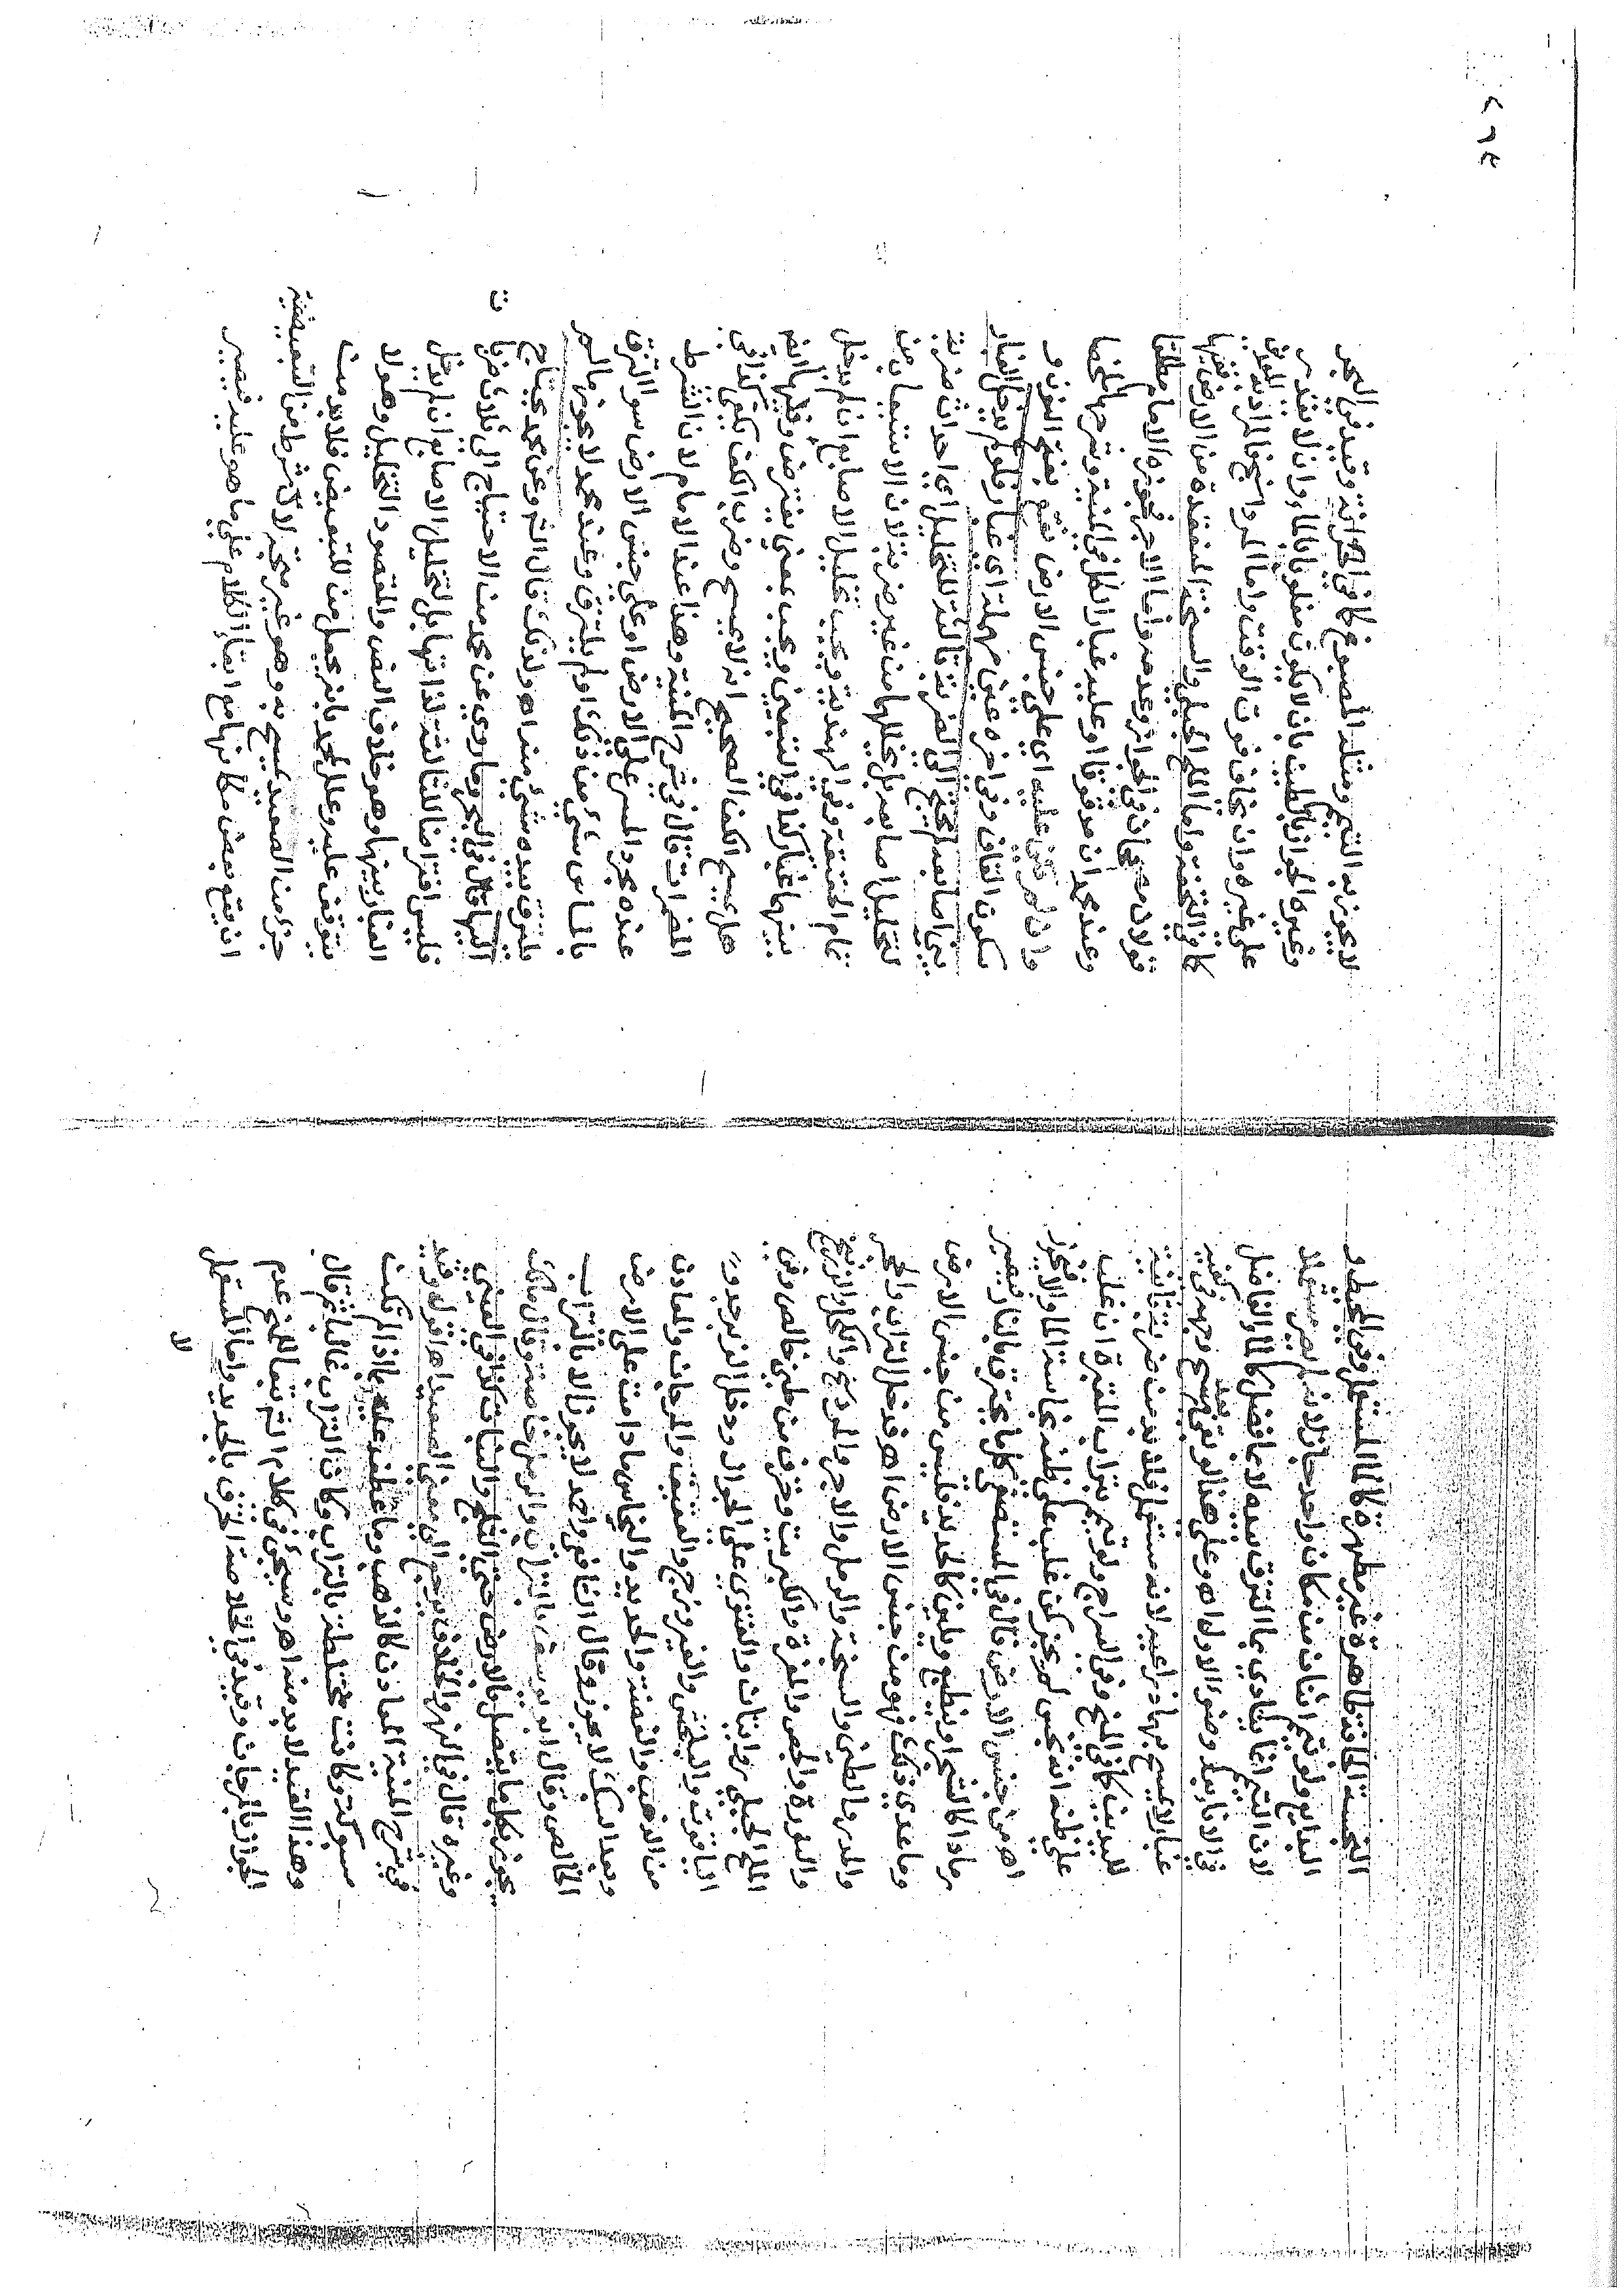 النجسة الجافة طاهرة غير مطهرة كالماء المستعمل وفي المحيط و
البدايع ولو تيمم اثنان من مكان واحد جاز لانه لم يصر مستعملا
لان التيمم انما يتادي بما التزق بيده لا بما فضل كالماء الفاضل
في الاناء بعد وضوء الاول اه وعلى هذا لو بقي بعد مسح وجهه في كفيه
غبار لا يمسح بهما ذراعيه لانه مستعمل فلا بد من ضربة ثانية
لليدين كما في المنح وفي السراج ولو تيمم بتراب المقبرة ان غلب
على ظنه انه نجس لم يجز كمن غلب على ظنه نجاسة الماء والا فيجوز
اه من جنس الارض قال في المستصفى كل ما يحترق بالنار فيصير
رمادا كالشجر او ينطبع ويلين كالحديد فليس من جنس الارض
وما عدى ذلك فهو من جنس الارض اه فدخل التراب والحجر
والمدر والطين والسبخة والرمل والاجر والكحل والزرنيخ
والنورة والجص والمغرة والكبريت وخزف من طين خالص وفي
الملح الجبلي روايتان والفتوى على الجواز ودخل الزبرجد و
الياقوت والبلخش والفيروزج والعقيق والمرجان والمعادن
من الذهب والفضة والحديد والنحاس مادامت على الارض
وبعد السبك لا يجوز وقال الشافعي واحمد لا يجوز الا بالتراب
الخالص وقال ابو يوسف بالتراب والرمل خاصة وقال مالك
يجوز بكل ما يتصل بالارض حتى الثلج والنبات كذا في العيني
وغيره قال في النهر والخلاف يرجع الى معنى الصعيد اه اقول وقيد
في شرح المنية المعادن كالذهب وما عطف عليه باذا لم تكن
مسبوكة وكانت مختلطة بالتراب وكان التراب غالبا ثم قال
وهذا القيد لابد منه اه وسيجيء في كلام الشم تبعا للفتح عدم
الجواز بالمرجان وقيد في الخلاصة الخزف بالجديد واما المستعمل
لا
لا يجوز به التيمم ومثله المصبوغ كما في الخزانة وقيد في البحر
وغيره الجواز بالطين بان لا يكون مغلوبا بالماء وان لا يقدر
على غيره وان يخاف فوت الوقت واما المرداسنج فالمراد به المعدني
كما في التحفة واما الملح الجبلي والسبخة المنعقدة من الارض ففيها
قولان مصححان في الجواز وعدمه واما الاجر فجوزه الامام مطلقا
وعند محمد ان مدقوقا او عليه غبار الكل في المنية وشرحها
وان لم يكن عليه اي على جنس الارض نقع بفتح النون و
سكون القاف وفي اخره عين مهملة اي غبار فلو لم يدخل الغبار
بين اصابعه لم يحتج الى ضربة ثالثة للتخليل اي احداث ضربة
لتخليل اصابعه بل يخللها من غير ضربة لان الاستيعاب من
تمام الحقيقة وفي الهندية ويجب تخليل الاصابع ان لم يدخل
بينها غبار كذا في التبيين ويجب بمعنى يفترض وفيها ايضا
هل يمسح الكف الصحيح انه لا يمسح وضرب الكف يكفي كذا في
المضمرات قال في شرح المنية وهذا عند الامام لان الشرط
عنده مجرد المس على الارض او على جنس الارض سواء التزق
بالماس شيء من ذلك او لم يلتزق وعند محمد لا يجوز ما لم
يلتزق بيده شيء منه اه ولذلك قال الشم وعن محمد يحتاج
اليها قال في البحر وما روي عن محمد من الاحتياج الى ثلاث ضربات
فليس افتراضا للثالثة لذاتها بل لتخليل الاصابع ان لم يدخل
الغبار بينها وهو خلاف النص والمقصود التخليل وهو لا
يتوقف عليه وعلل محمد بانه يحمل من للتبعيض فلا بد من
جزء من الصعيد يمسح به وهو غير متجه لان شرط من التبعيضية
ان يقع بعض مكانها مع ابقاء الكلام على ما هو عليه فيصير